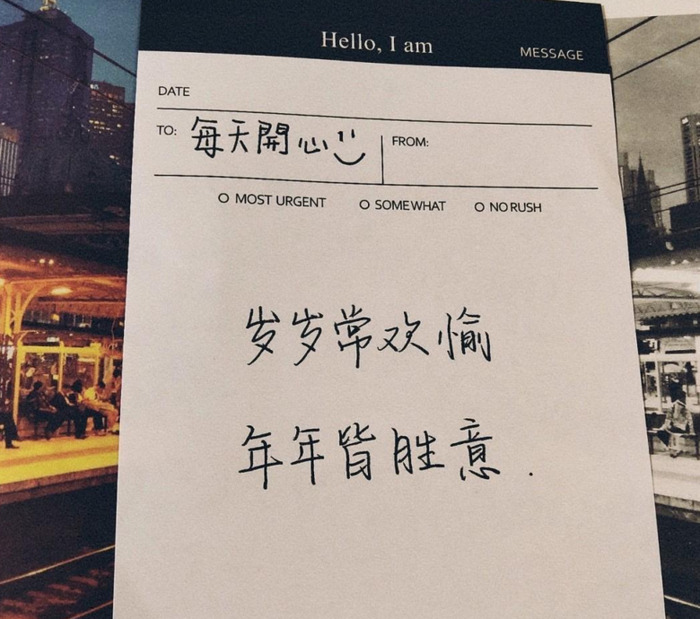 Hello, I am
MESSAGE
DATE
TO: 每天開心
FROM:
MOST URGENT
SOMEWHAT
NO RUSH
岁岁常欢愉
年年皆胜意.